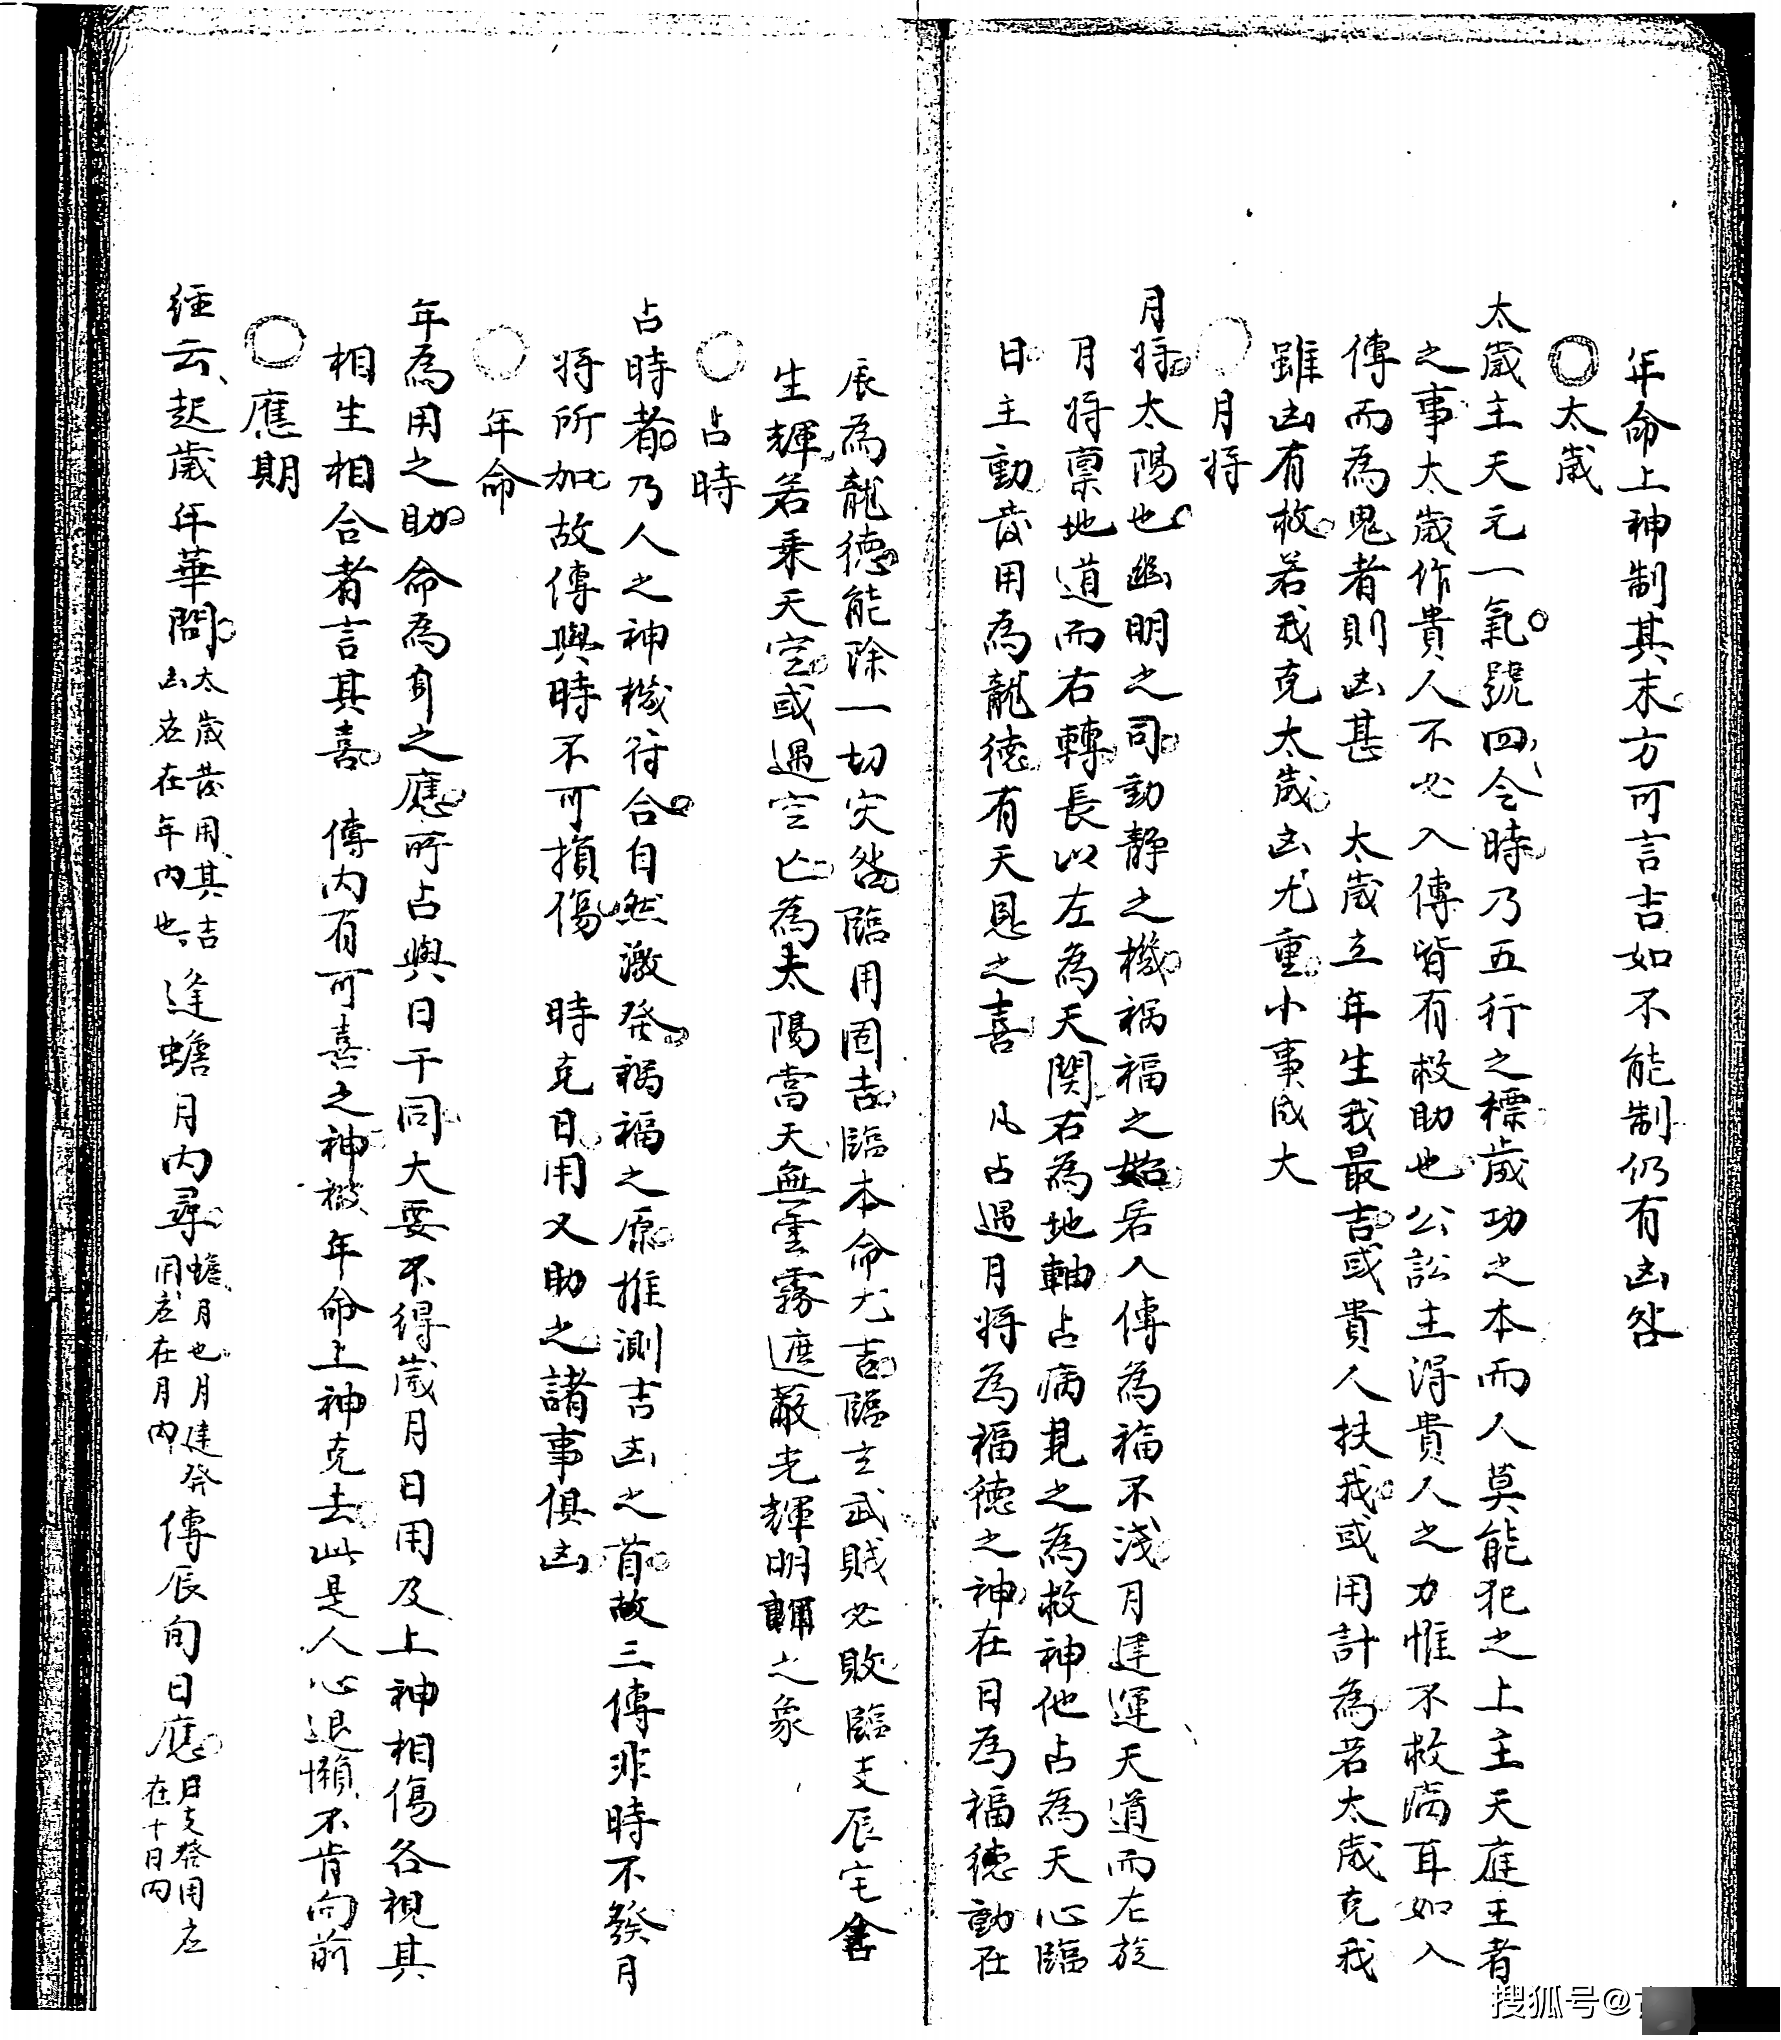 年命上神制其末方可言吉如不能制仍有凶咎
○太歲
太歲主天元一氣號四令時乃五行之標歲功之本而人莫能犯之上主天庭王者
之事太歲作貴人不必入傳皆有救助也公訟主得貴人之力惟不救病耳如入
傳而為鬼者則凶甚 太歲立年生我最吉或貴人扶我或用計為若太歲克我
雖凶有救若我克太歲凶尤重小事成大
○月將
月將太陽也幽明之司動静之機禍福之始若入傳為福不淺月建運天道而左旋
月將禀地道而右轉長以左為天関右為地軸占病見之為救神他占為天心臨
日主動發用為龍德有天恩之喜 凡占遇月將為福德之神在日為福德動在
辰為龍德能除一切灾咎臨用固吉臨本命尤吉臨玄武賊必敗臨支辰宅舍
生輝若乘天空或遇空亡為太陽當天無雲霧遮蔽光輝明之象
○占時
占時者乃人之神機符合自然激發禍福之原推測吉凶之首故三傳非時不發月
將所加故傳與時不可損傷 時克日用又助之諸事俱凶
○年命
年為用之助命為身之應所占與日干同大要不得歲月日用及上神相傷各視其
相生相合者言其喜 傳内有可喜之神被年命上神克去此是人心退懶不肯向前
○應期
經云起歲年華問太歲發用其吉凶应在年内也逢蟾月内尋蟾月也月建發用应在月内傳辰旬日應日支發用应在十日内
搜狐号@